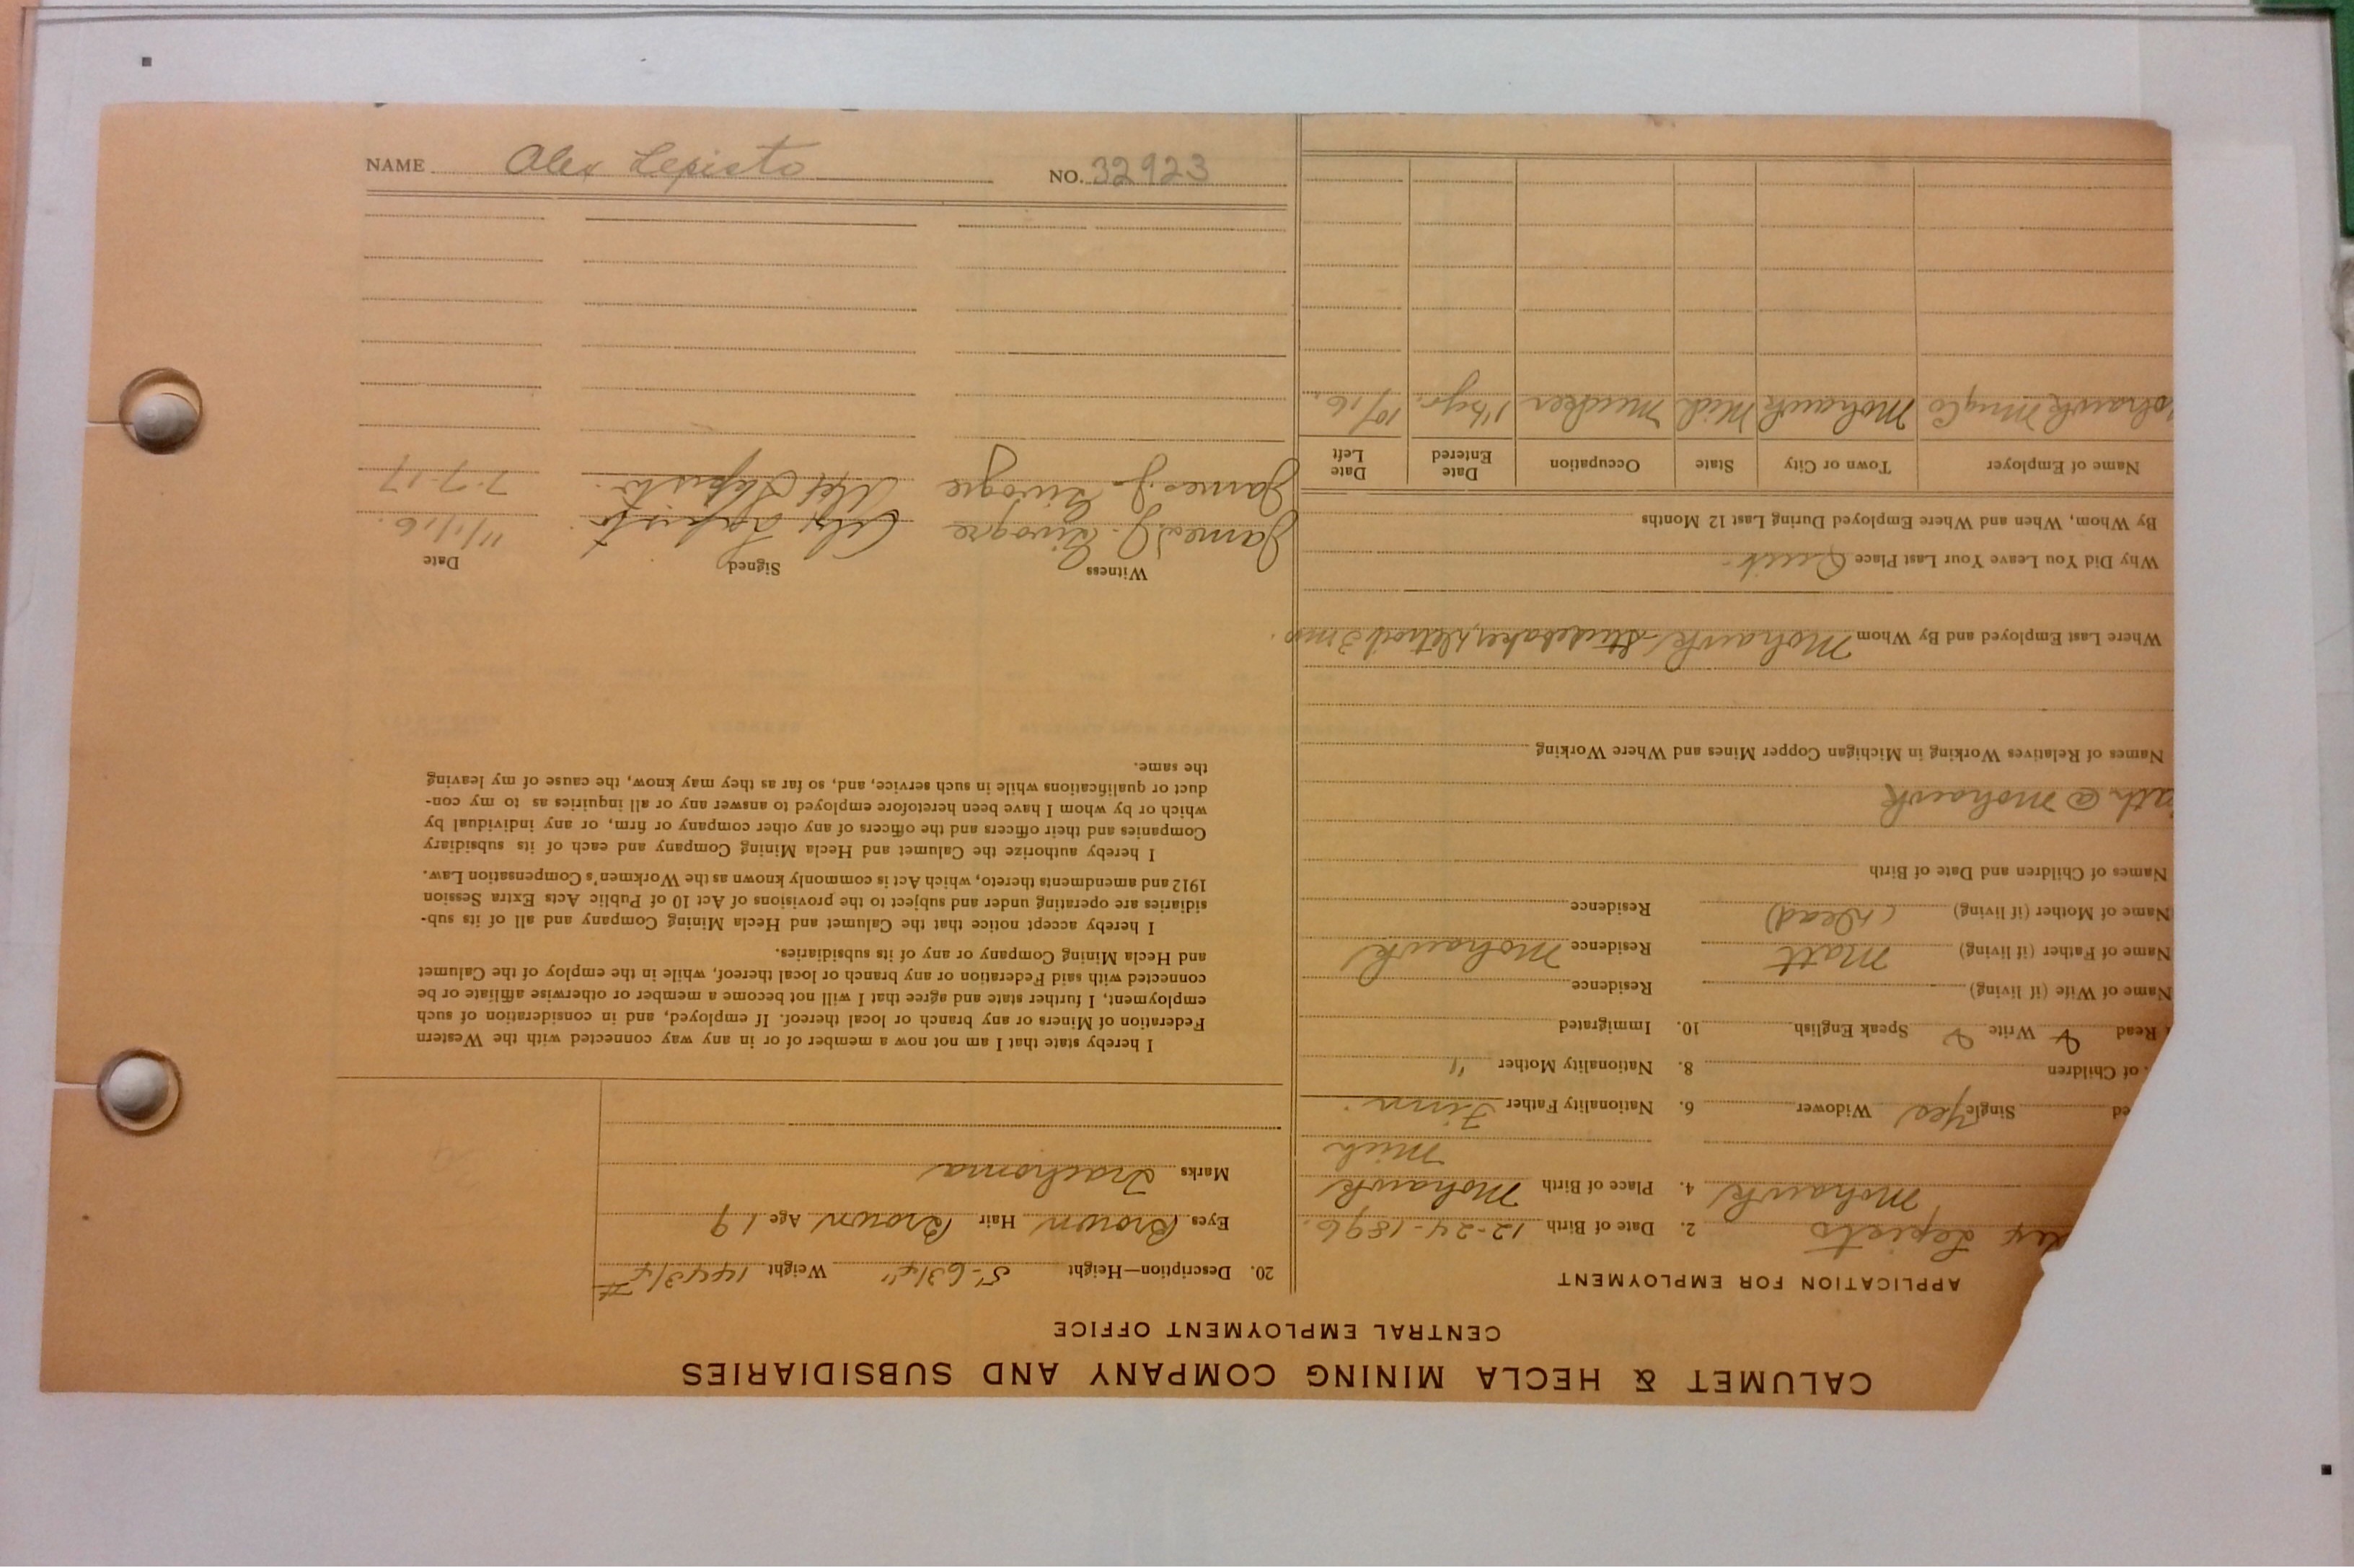 CALUMET & HECLA MINING COMPANY AND SUBSIDIARIES
CENTRAL EMPLOYMENT OFFICE
APPLICATION FOR EMPLOYMENT
Lepisto 2. Date of Birth 12-24-1896.
Mohawk 4. Place of Birth Mohawk
Mich
ed Single Yes Widower 6. Nationality Father Finn.
. of Children 8. Nationality Mother "
Read Write Speak English 10. Immigrated
Name of Wife (if living) Residence
Name of Father (if living) Matt Residence Mohawk
Name of Mother (if living) (Dead) Residence
Names of Children and Date of Birth
@ Mohawk
Names of Relatives Working in Michigan Copper Mines and Where Working
Where Last Employed and By Whom Mohawk Studebaker, Detroit 3 mo.
Why Did You Leave Your Last Place Quit.
By Whom, When and Where Employed During Last 12 Months
Name of Employer Town or City State Occupation Date Entered Date Left
ohawk Mng Co Mohawk Mich Mucker 10/16.
20. Description—Height 5'-6 3/4" Weight 144 3/4 #
Eyes Brown Hair Brown Age 19
Marks Trachoma
I hereby state that I am not now a member of or in any way connected with the Western
Federation of Miners or any branch or local thereof. If employed, and in consideration of such
employment, I further state and agree that I will not become a member or otherwise affiliate or be
connected with said Federation or any branch or local thereof, while in the employ of the Calumet
and Hecla Mining Company or any of its subsidiaries.
I hereby accept notice that the Calumet and Hecla Mining Company and all of its sub-
sidiaries are operating under and subject to the provisions of Act 10 of Public Acts Extra Session
1912 and amendments thereto, which Act is commonly known as the Workmen's Compensation Law.
I hereby authorize the Calumet and Hecla Mining Company and each of its subsidiary
Companies and their officers and the officers of any other company or firm, or any individual by
which or by whom I have been heretofore employed to answer any or all inquiries as to my con-
duct or qualifications while in such service, and, so far as they may know, the cause of my leaving
the same.
Witness Signed Date
James J. Alex Lepisto 11/1/16.
James J. Alex Lepisto. 7-7-17
NAME Alex Lepisto NO. 32923